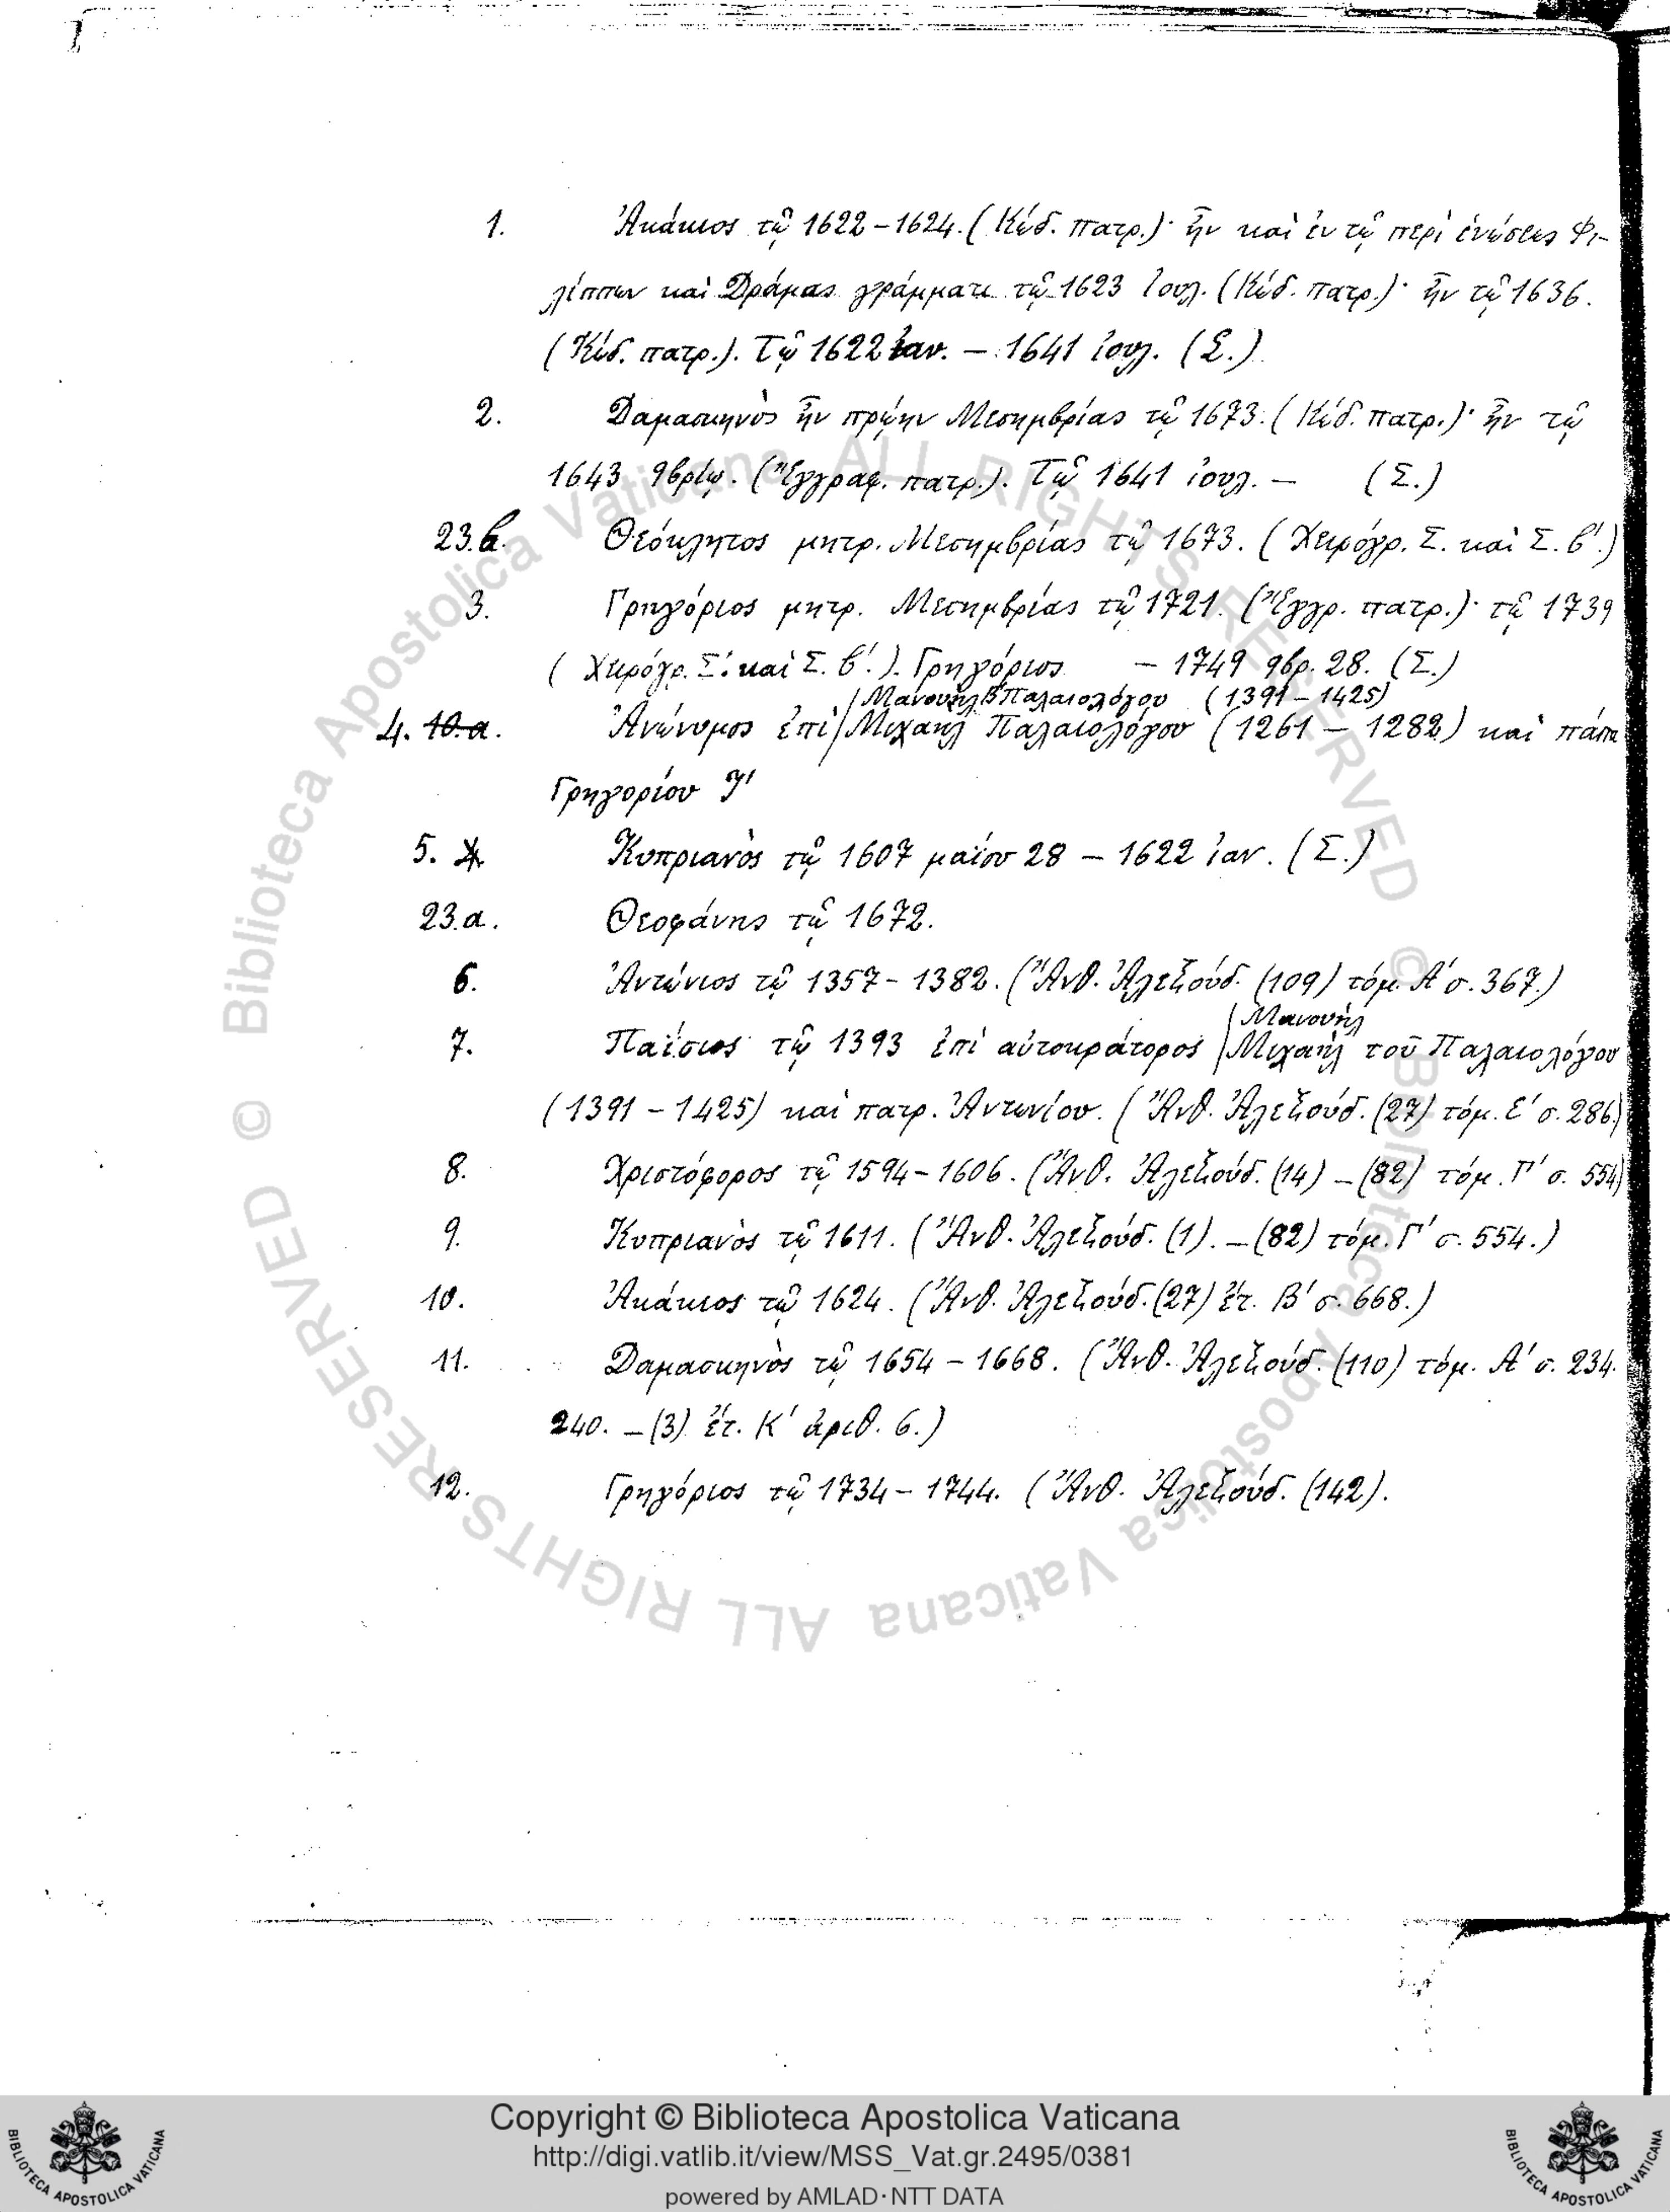 1. Ἀκάκιος τῷ 1622 – 1624. (Κώδ. πατρ.)· ἦν καὶ ἐν τῷ περὶ ἑνώσεως Φι-
λίππων καὶ Δράμας γράμματι τῷ 1623 ἰουλ. (Κώδ. πατρ.)· ἦν τῷ 1636.
(Κώδ. πατρ.). Τῷ 1622 ἰαν. – 1641 ἰουλ. (Σ.)
2. Δαμασκηνὸς ἦν πρώην Μεσημβρίας τῷ 1673. (Κώδ. πατρ.)· ἦν τῷ
1643 9βρίῳ. (Ἔγγραφ. πατρ.). Τῷ 1641 ἰουλ. – (Σ.)
23.b. Θεόκλητος μητρ. Μεσημβρίας τῷ 1673. (Χειρόγρ. Σ. καὶ Σ. β'.)
3. Γρηγόριος μητρ. Μεσημβρίας τῷ 1721. (Ἔγγρ. πατρ.)· τῷ 1739
(Χειρόγρ. Σ. καὶ Σ. β'.). Γρηγόριος – 1749 9βρ. 28. (Σ.)
Μανουὴλ Β' Παλαιολόγου (1391 – 1425)
4. 10.a. Ἀνώνυμος ἐπὶ Μιχαὴλ Παλαιολόγου (1261 – 1282) καὶ πάπα
Γρηγορίου Ι'
5. Κυπριανὸς τῷ 1607 μαΐου 28 – 1622 ἰαν. (Σ.)
23.a. Θεοφάνης τῷ 1672.
6. Ἀντώνιος τῷ 1357 – 1382. (Ἄνθ. Ἀλεξούδ. (109) τόμ. Α' σ. 367.)
Μανουὴλ
7. Παΐσιος τῷ 1393 ἐπὶ αὐτοκράτορος Μιχαὴλ τοῦ Παλαιολόγου
(1391 – 1425) καὶ πατρ. Ἀντωνίου. (Ἄνθ. Ἀλεξούδ. (27) τόμ. Ε' σ. 286.)
8. Χριστόφορος τῷ 1594 – 1606. (Ἄνθ. Ἀλεξούδ. (14) – (82) τόμ. Γ' σ. 554)
9. Κυπριανὸς τῷ 1611. (Ἄνθ. Ἀλεξούδ. (1). – (82) τόμ. Γ' σ. 554.)
10. Ἀκάκιος τῷ 1624. (Ἄνθ. Ἀλεξούδ. (27) ἔτ. Β' σ. 668.)
11. Δαμασκηνὸς τῷ 1654 – 1668. (Ἄνθ. Ἀλεξούδ. (110) τόμ. Α' σ. 234.
240. – (3) ἔτ. Κ' ἀριθ. 6.)
12. Γρηγόριος τῷ 1734 – 1744. (Ἄνθ. Ἀλεξούδ. (142).
© Biblioteca Apostolica Vaticana ALL RIGHTS RESERVED © Biblioteca Apostolica Vaticana ALL RIGHTS RESERVED
Copyright © Biblioteca Apostolica Vaticana
http://digi.vatlib.it/view/MSS_Vat.gr.2495/0381
powered by AMLAD·NTT DATA
BIBLIOTECA APOSTOLICA VATICANA
BIBLIOTECA APOSTOLICA VATICANA